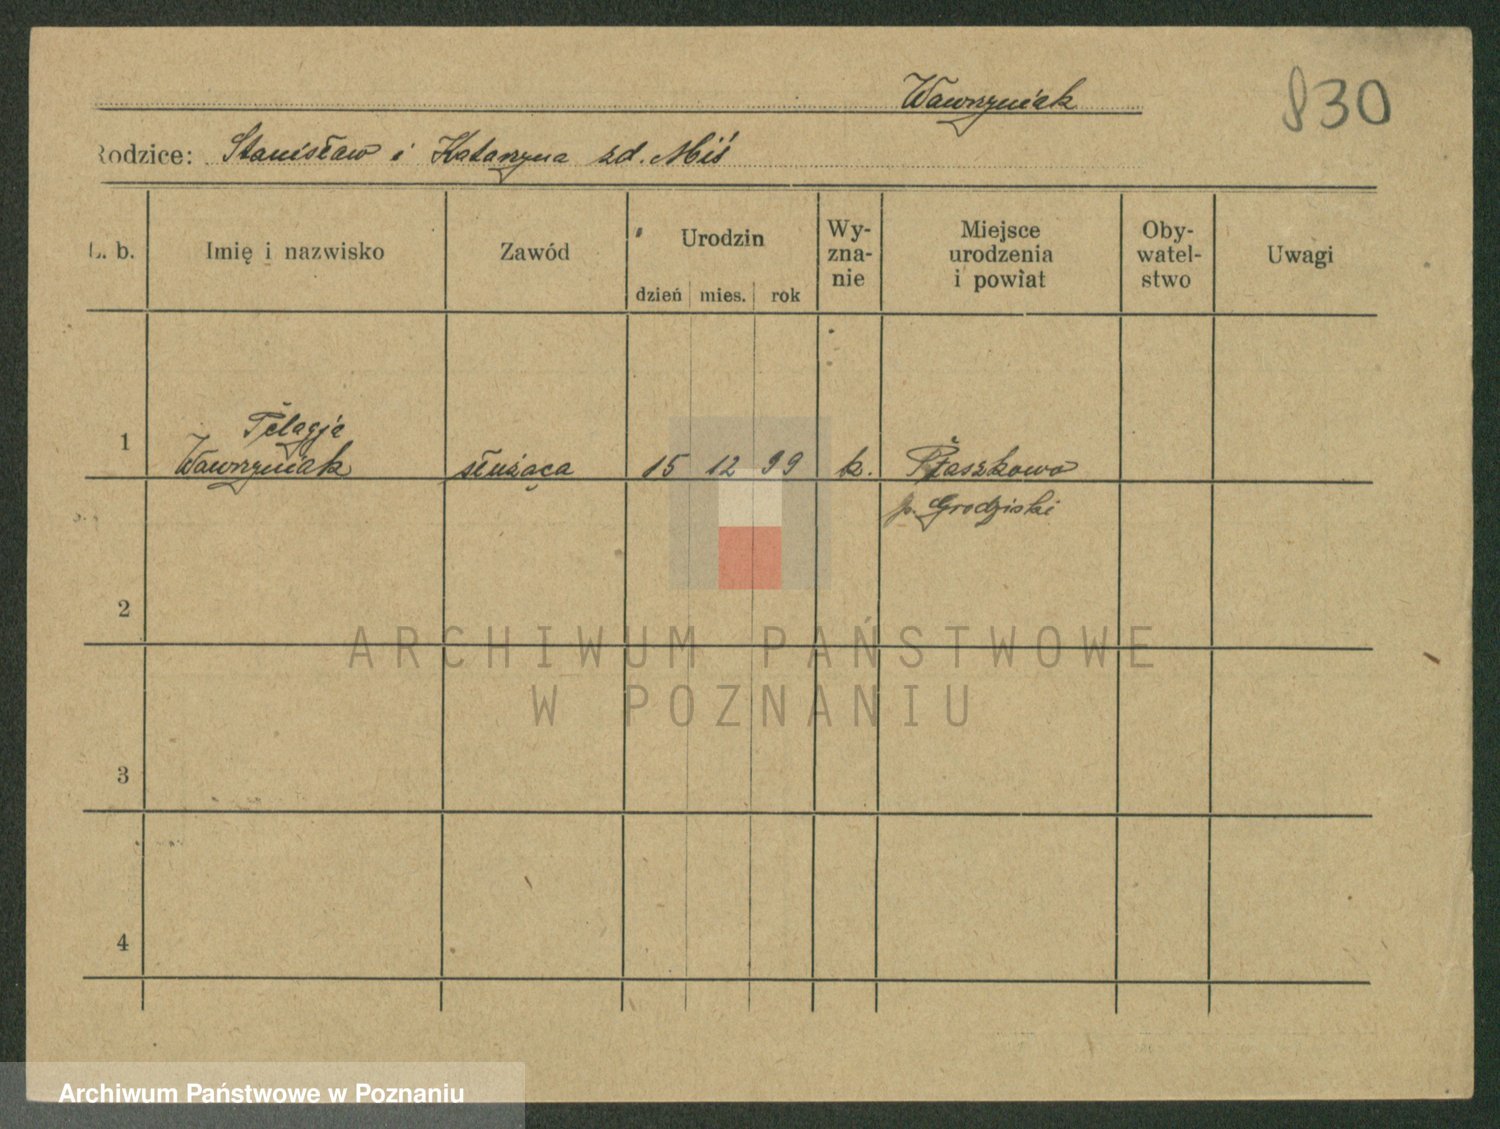 Wawrzyniak
830
Rodzice: Stanisław i Katarzyna zd. Miś
L. b.
Imię i nazwisko
Zawód
Urodzin
dzień mies. rok
Wy-
zna-
nie
Miejsce
urodzenia
i powiat
Oby-
watel-
stwo
Uwagi
1
Pelagja
Wawrzyniak
służąca
15 12 99
k.
Ptaszkowo
p. Grodziski
2
3
4
ARCHIWUM PAŃSTWOWE
W POZNANIU
Archiwum Państwowe w Poznaniu